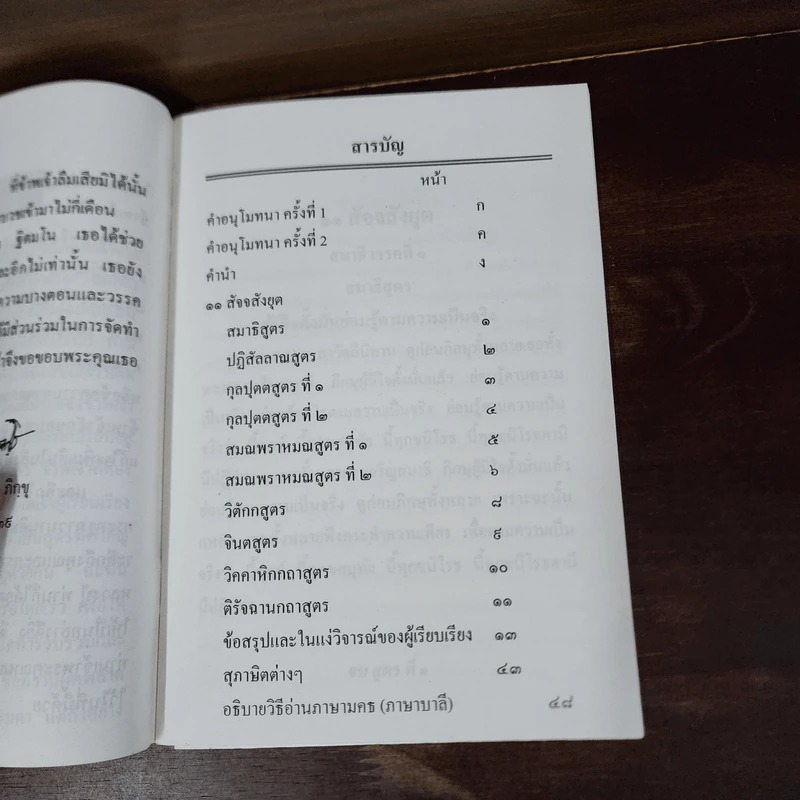 ที่ข้าพเจ้าลืมเสียมิได้นั้น
เข้ามาไม่กี่เดือน
ฐิตมโน เธอได้ช่วย
อีกไม่เท่านั้น เธอยัง
ความบางตอนและวรรค
มีส่วนร่วมในการจัดทำ
จึงขอขอบพระคุณเธอ
ภิกขุ
สารบัญ
หน้า
คำอนุโมทนา ครั้งที่ 1 ก
คำอนุโมทนา ครั้งที่ 2 ค
คำนำ ง
๑๑ สัจจสังยุต
สมาธิสูตร ๑
ปฏิสัลลาณสูตร ๒
กุลปุตตสูตร ที่ ๑ ๓
กุลปุตตสูตร ที่ ๒ ๔
สมณพราหมณสูตร ที่ ๑ ๕
สมณพราหมณสูตร ที่ ๒ ๖
วิตักกสูตร ๘
จินตสูตร ๙
วิคคาหิกกถาสูตร ๑๐
ติรัจฉานกถาสูตร ๑๑
ข้อสรุปและในแง่วิจารณ์ของผู้เรียบเรียง ๑๓
สุภาษิตต่างๆ ๔๓
อธิบายวิธีอ่านภาษามคธ (ภาษาบาลี) ๔๘